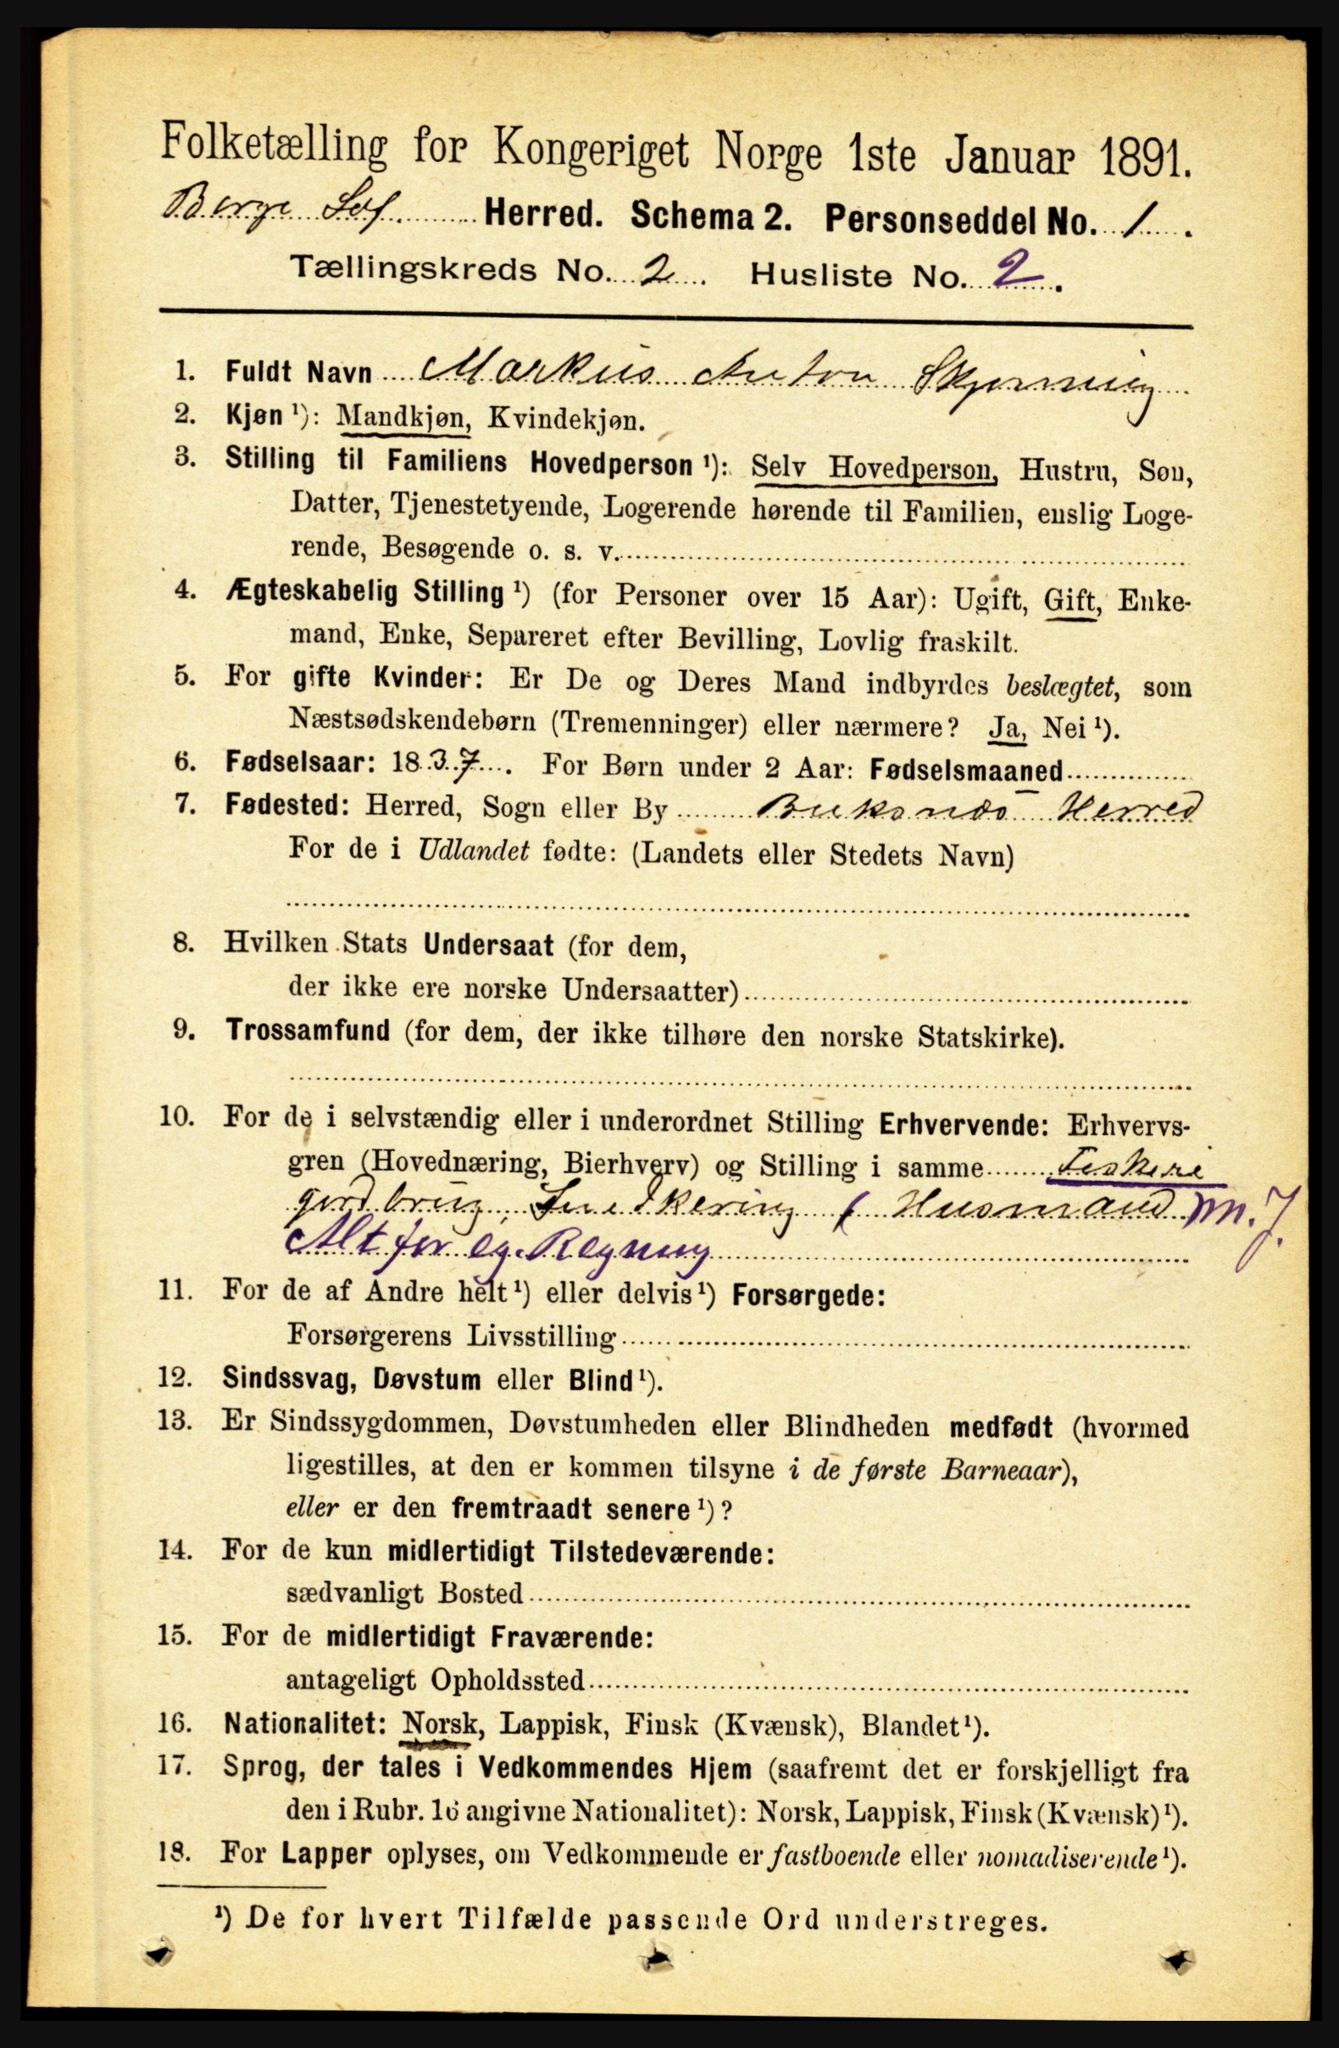 Folketælling for Kongeriget Norge 1ste Januar 1891.
Borge Lof. Herred. Schema 2. Personseddel No. 1.
Tællingskreds No. 2. Husliste No. 2.
1. Fuldt Navn Markus Anton Skjerming
2. Kjøn ¹): Mandkjøn, Kvindekjøn.
3. Stilling til Familiens Hovedperson ¹): Selv Hovedperson, Hustru, Søn,
Datter, Tjenestetyende, Logerende hørende til Familien, enslig Loge-
rende, Besøgende o. s. v.
4. Ægteskabelig Stilling ¹) (for Personer over 15 Aar): Ugift, Gift, Enke-
mand, Enke, Separeret efter Bevilling, Lovlig fraskilt.
5. For gifte Kvinder: Er De og Deres Mand indbyrdes beslægtet, som
Næstsødskendebørn (Tremenninger) eller nærmere? Ja, Nei ¹).
6. Fødselsaar: 1837. For Børn under 2 Aar: Fødselsmaaned
7. Fødested: Herred, Sogn eller By Buksnæs Herred
For de i Udlandet fødte: (Landets eller Stedets Navn)
8. Hvilken Stats Undersaat (for dem,
der ikke ere norske Undersaatter)
9. Trossamfund (for dem, der ikke tilhøre den norske Statskirke).
10. For de i selvstændig eller i underordnet Stilling Erhvervende: Erhvervs-
gren (Hovednæring, Bierhverv) og Stilling i samme Feskeri
gordbrug, Snedkering ( Husmand m. J.
Alt for eg. Regning
11. For de af Andre helt ¹) eller delvis ¹) Forsørgede:
Forsørgerens Livsstilling
12. Sindssvag, Døvstum eller Blind ¹).
13. Er Sindssygdommen, Døvstumheden eller Blindheden medfødt (hvormed
ligestilles, at den er kommen tilsyne i de første Barneaar),
eller er den fremtraadt senere ¹)?
14. For de kun midlertidigt Tilstedeværende:
sædvanligt Bosted
15. For de midlertidigt Fraværende:
antageligt Opholdssted
16. Nationalitet: Norsk, Lappisk, Finsk (Kvænsk), Blandet ¹).
17. Sprog, der tales i Vedkommendes Hjem (saafremt det er forskjelligt fra
den i Rubr. 16 angivne Nationalitet): Norsk, Lappisk, Finsk (Kvænsk) ¹).
18. For Lapper oplyses, om Vedkommende er fastboende eller nomadiserende ¹).
¹) De for hvert Tilfælde passende Ord understreges.